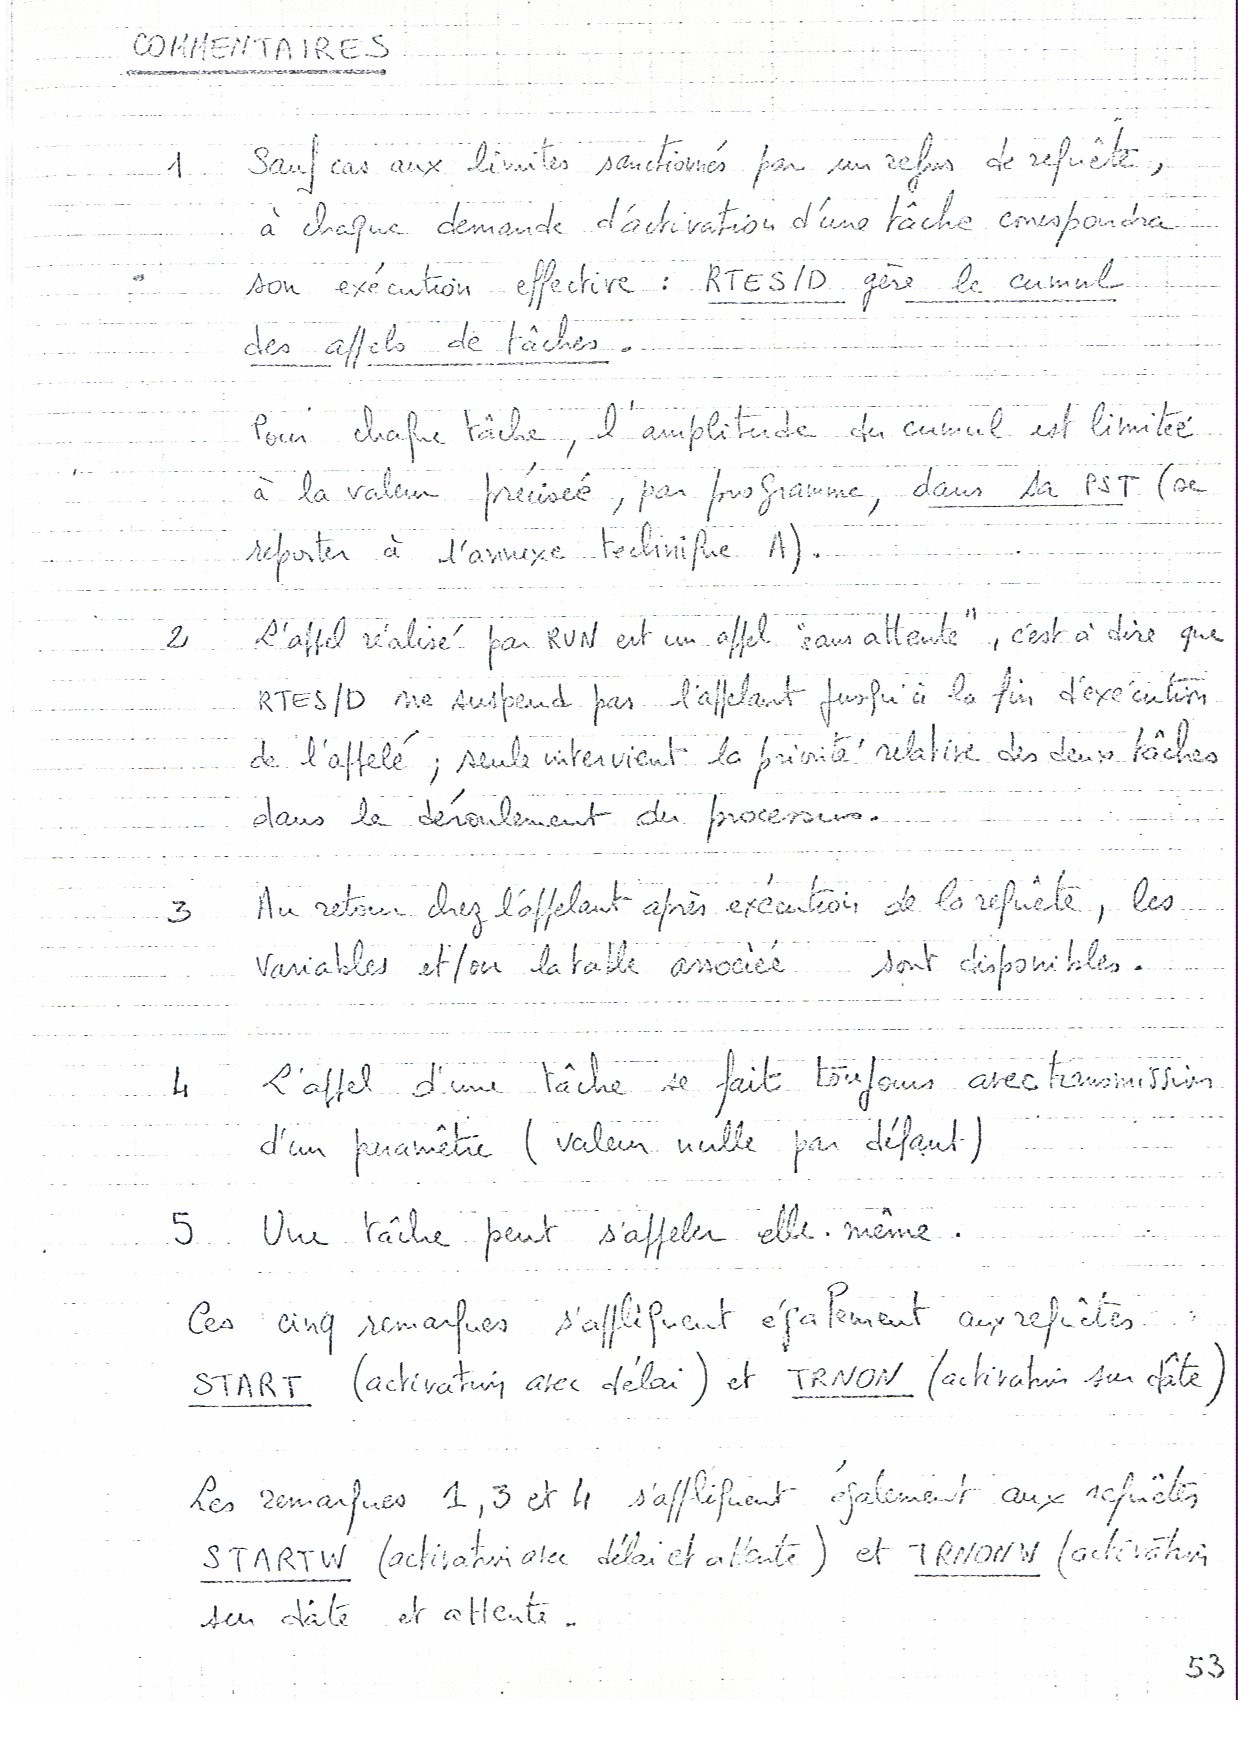 COMMENTAIRES
1 Sauf cas aux limites sanctionnés par un refus de requête,
à chaque demande d'activation d'une tâche correspondra
son exécution effective : RTES/D gère le cumul
des appels de tâches.
Pour chaque tâche, l'amplitude du cumul est limitée
à la valeur précisée, par programme, dans sa PST (se
reporter à l'annexe technique A).
2 L'appel réalisé par RUN est un appel "sans attente", c'est à dire que
RTES/D ne suspend pas l'appelant jusqu'à la fin d'exécution
de l'appelé ; seule intervient la priorité relative des deux tâches
dans le déroulement du processus.
3 Au retour chez l'appelant après exécution de la requête, les
variables et/ou la table associée sont disponibles.
4 L'appel d'une tâche se fait toujours avec transmission
d'un paramètre (valeur nulle par défaut)
5 Une tâche peut s'appeler elle-même.
Ces cinq remarques s'appliquent également aux requêtes
START (activation avec délai) et TRNON (activation sur dâte)
Les remarques 1, 3 et 4 s'appliquent également aux requêtes
STARTW (activation avec délai et attente) et TRNONW (activation
sur dâte et attente.
53